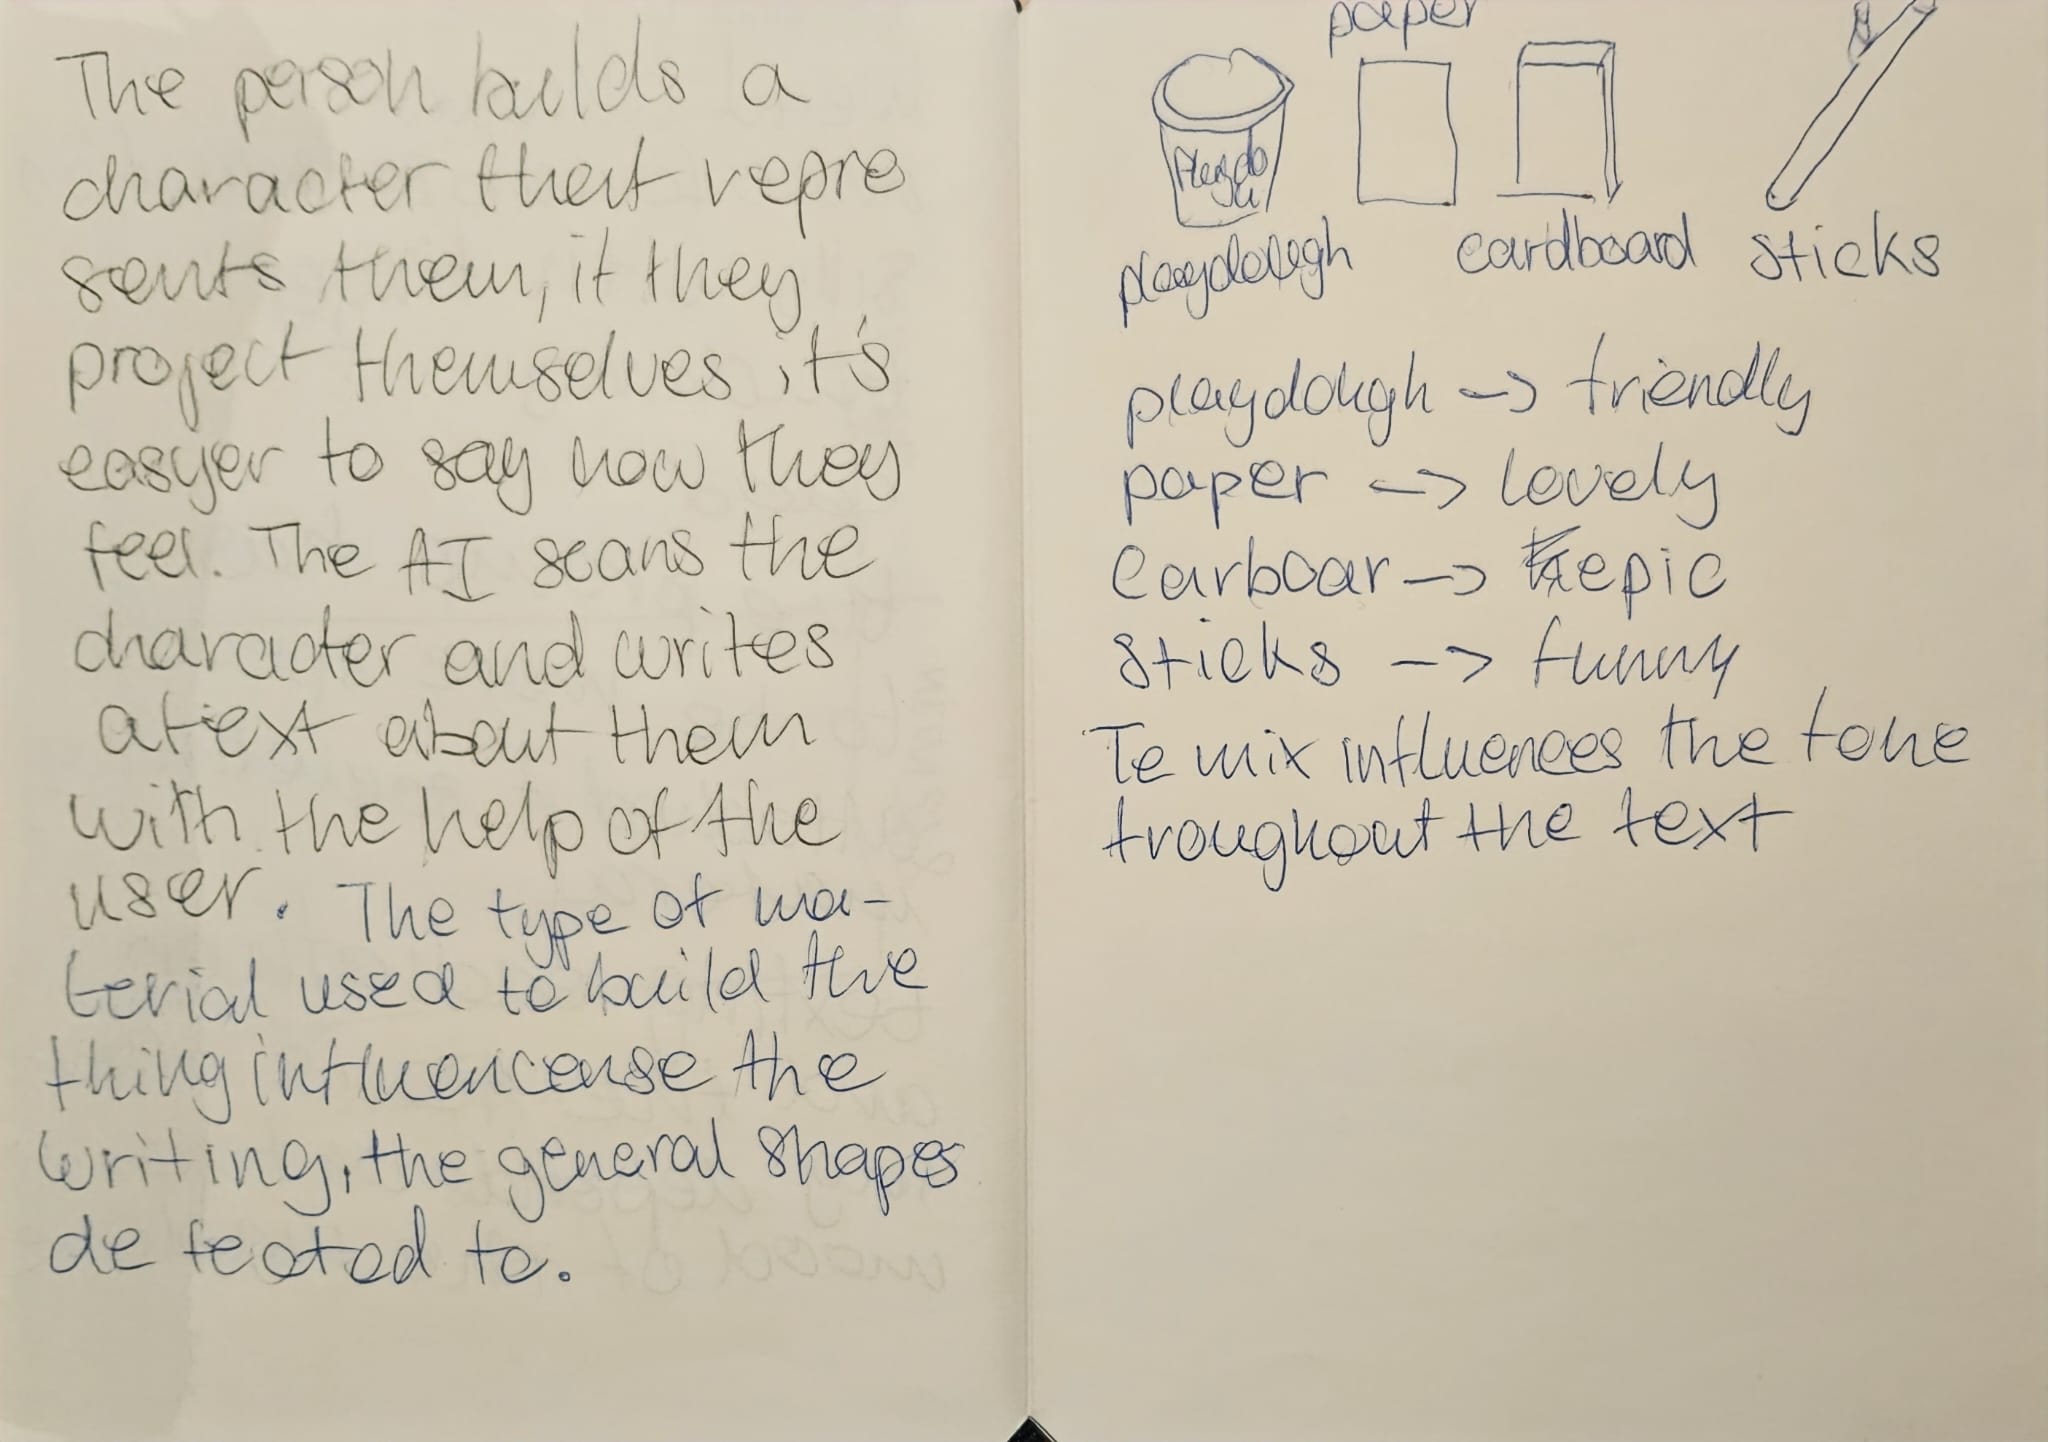 The person builds a
character that repre
sents them, if they
project themselves it's
easyer to say how they
feel. The AI scans the
character and writes
a text about them
with the help of the
user. The type of ma-
terial used to build the
thing influencense the
writing, the general shapes
detected to.
paper
Playdo
u
playdough cardboard sticks
playdough -> friendly
paper -> lovely
Carboar -> epic
sticks -> funny
Te mix influences the tone
troughout the text